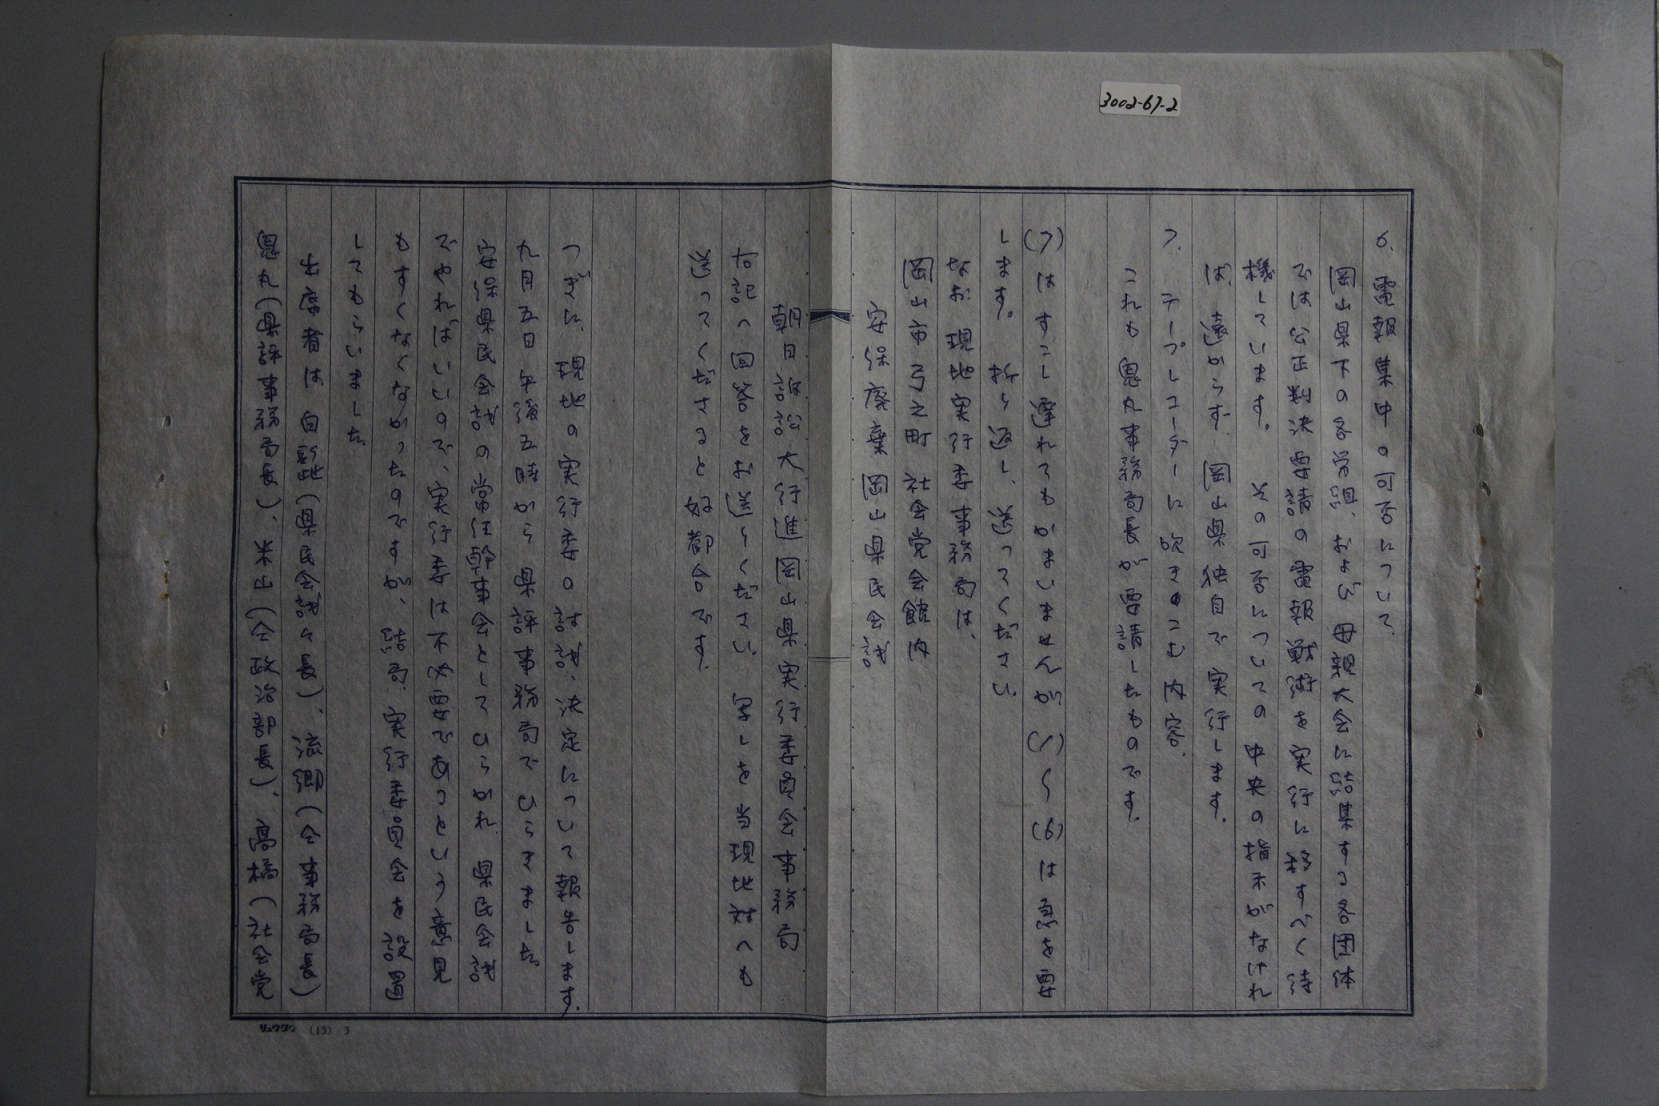 3002-67-2
6. 電報集中の可否について.
岡山県下の各労組、および母親大会に結集する各団体
では公正判決要請の電報戦術を実行に移すべく待
機しています。その可否についての中央の指示がなけれ
ば、遠からず、岡山県独自で実行します.
7. テープレコーダーに吹きこむ内容.
これも恩丸事務局長が要請したものです.
(7)はすこし遅れてもかまいませんが(1)〜(6)は急を要
します。折り返し、送ってください.
なお現地実行委事務局は、
岡山市弓之町 社会党会館内
安保廃棄 岡山県民会議
朝日訴訟大行進岡山県実行委員会事務局
右記へ回答をお送りください. 写しを当現地対へも
送ってくださると好都合です.
つぎに、現地の実行委の討議、決定について報告します.
九月五日午後五時から県評事務局でひらきました。
安保県民会議の常任幹事会としてひらかれ 県民会議
でやればいいので、実行委は不必要であるという意見
もすくなくなかったのですが、結局、実行委員会を設置
してもらいました
出席者は 自
(県民会議々長)、流郷(仝事務局長)
恩丸(県評事務局長)、米山(仝政治部長)、高橋(社会党
コクヨ (15) 3